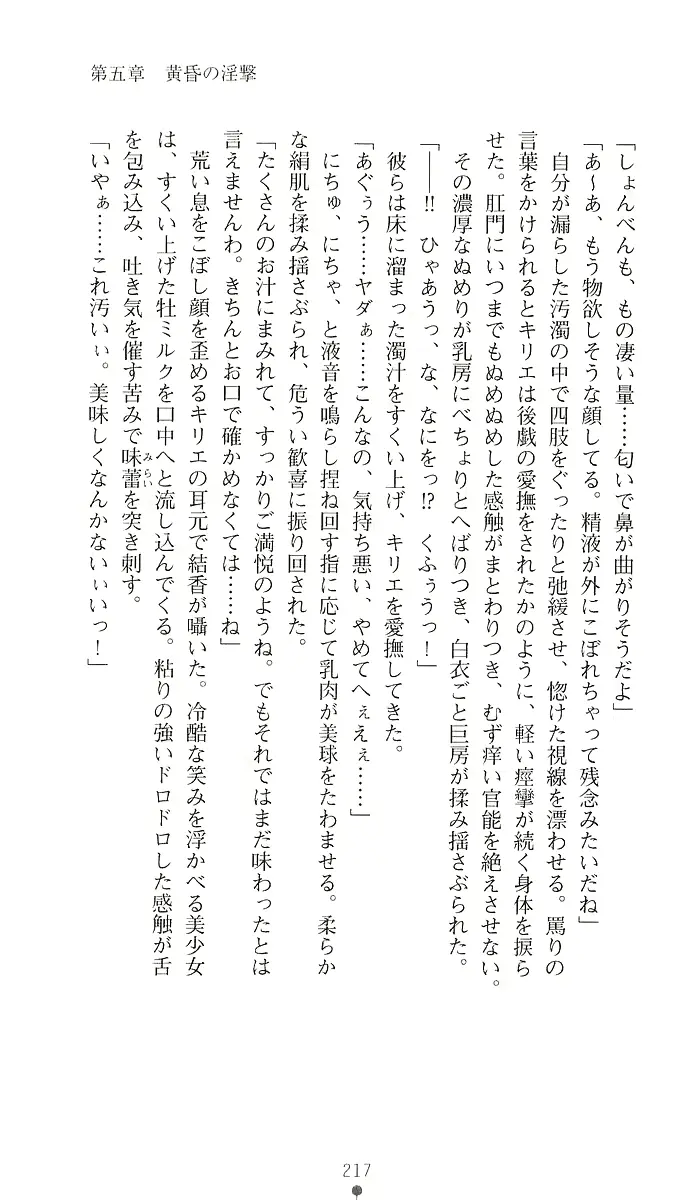 第五章　黄昏の淫撃
「しょんべんも、もの凄い量……匂いで鼻が曲がりそうだよ」
「あ〜あ、もう物欲しそうな顔してる。精液が外にこぼれちゃって残念みたいだね」
　自分が漏らした汚濁の中で四肢をぐったりと弛緩させ、惚けた視線を漂わせる。罵りの
言葉をかけられるとキリエは後戯の愛撫をされたかのように、軽い痙攣が続く身体を捩ら
せた。肛門にいつまでもぬめぬめした感触がまとわりつき、むず痒い官能を絶えさせない。
　その濃厚なぬめりが乳房にべちょりとへばりつき、白衣ごと巨房が揉み揺さぶられた。
「――!!　ひゃあうっ、な、なにをっ!?　くふぅうっ！」
　彼らは床に溜まった濁汁をすくい上げ、キリエを愛撫してきた。
「あぐぅう……ヤダぁ……こんなの、気持ち悪い、やめてへぇえぇ……」
　にちゅ、にちゃ、と液音を鳴らし捏ね回す指に応じて乳肉が美球をたわませる。柔らか
な絹肌を揉み揺さぶられ、危うい歓喜に振り回された。
「たくさんのお汁にまみれて、すっかりご満悦のようね。でもそれではまだ味わったとは
言えませんわ。きちんとお口で確かめなくては……ね」
　荒い息をこぼし顔を歪めるキリエの耳元で結香が囁いた。冷酷な笑みを浮かべる美少女
は、すくい上げた牡ミルクを口中へと流し込んでくる。粘りの強いドロドロした感触が舌
を包み込み、吐き気を催す苦みで味蕾を突き刺す。
みらい
「いやぁ……これ汚いぃ。美味しくなんかないぃいっ！」
217